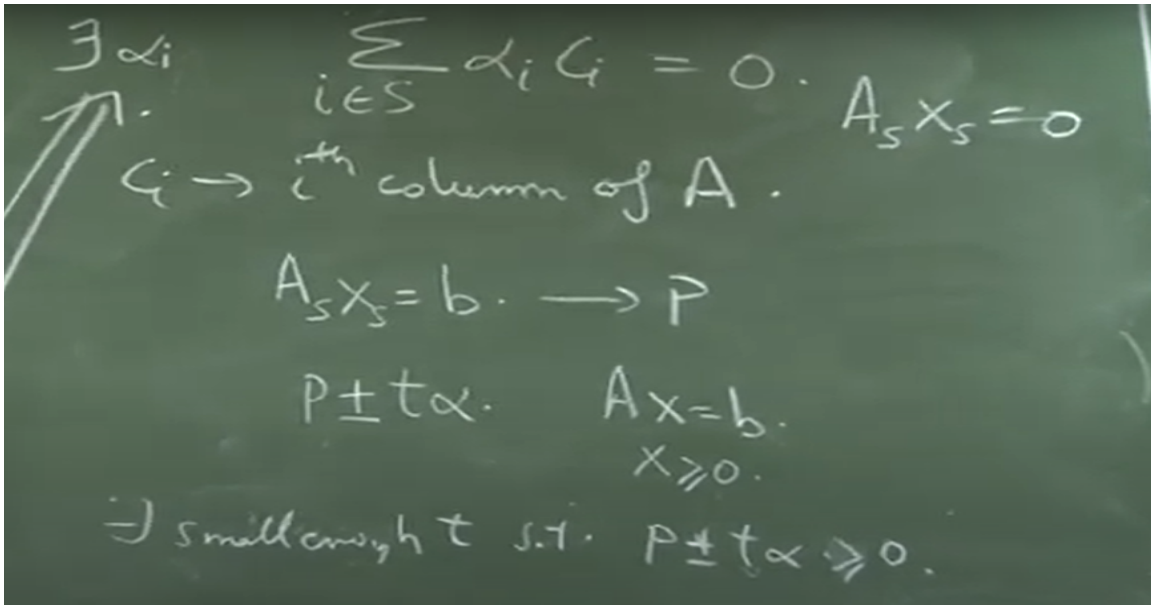 ∃ αi   ∑ i∈S αi Ci = 0.   A_S x_S = 0
Ci → i^th column of A.
A_S x_S = b. → P
P ± tα.   Ax = b.
x ≥ 0.
∃ small enough t s.t. P ± tα ≥ 0.